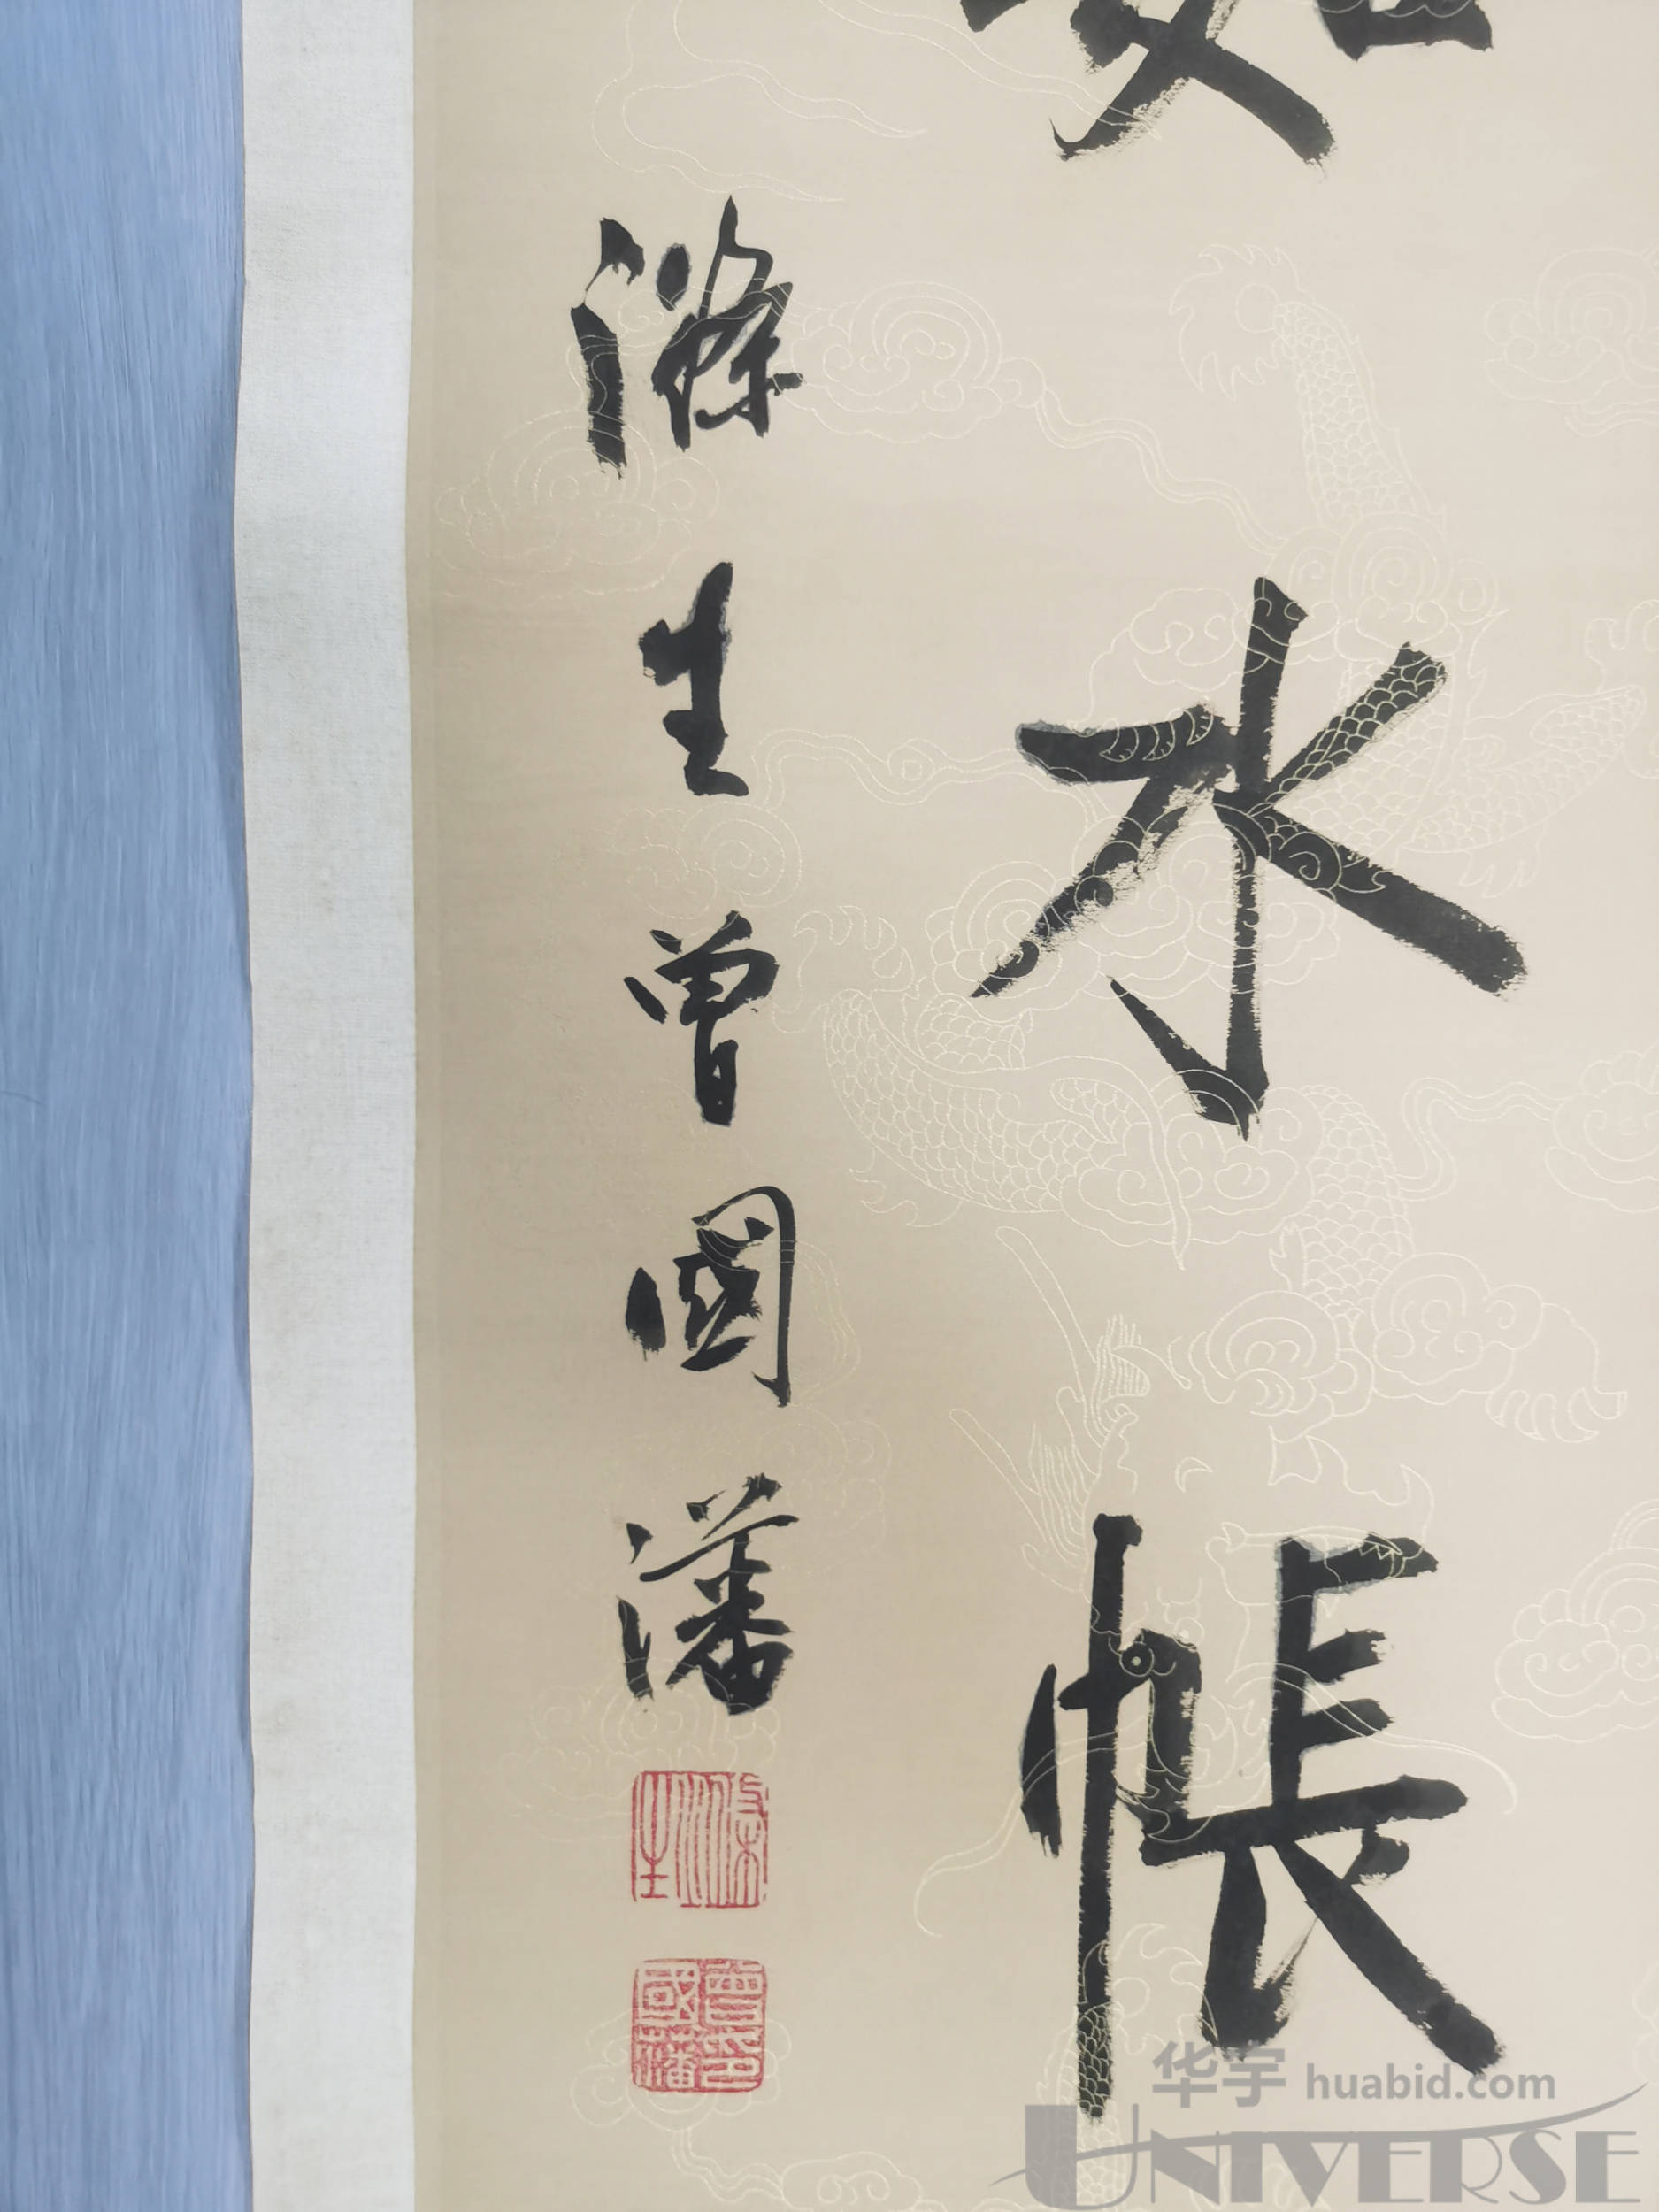 如水帳
滌生曾國藩
滌生
曾國藩印
华宇 huabid.com
UNIVERSE